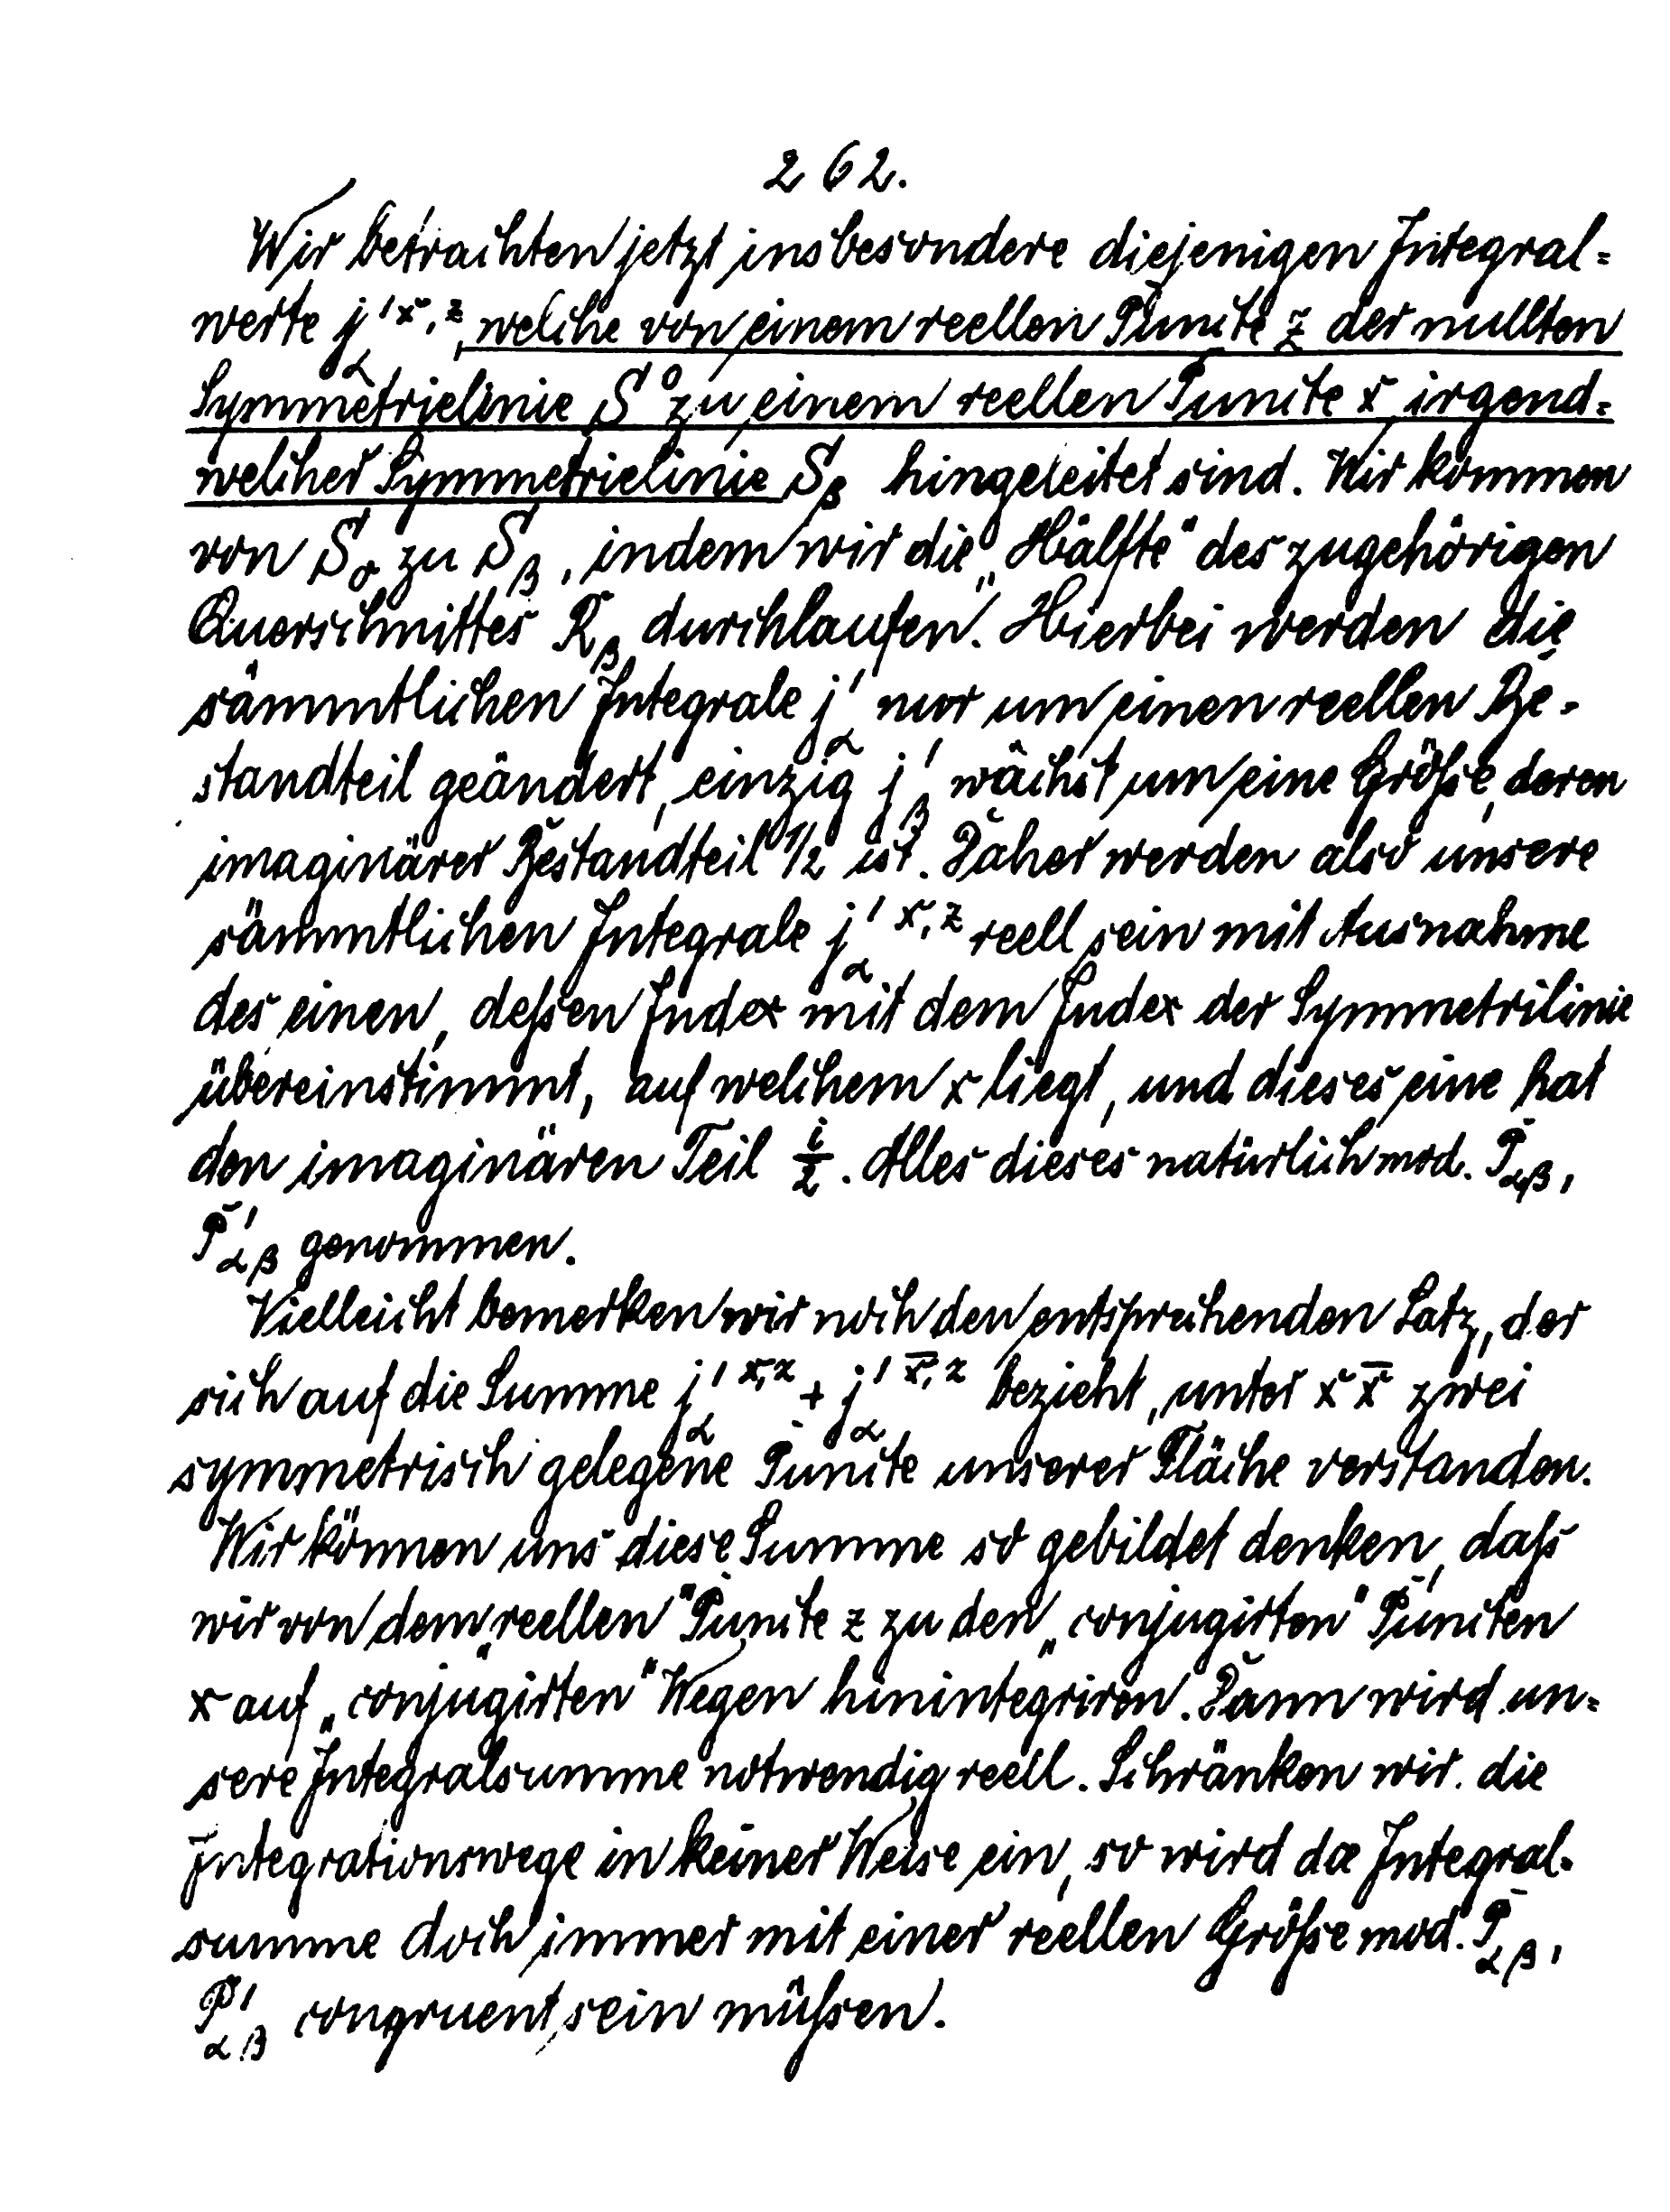 262.
Wir betrachten jetzt insbesondere diejenigen Integral=
werte j'_α^{x,z}, welche von einem reellen Punkte z der nullten
Symmetrielinie S^0 zu einem reellen Punkte x irgend=
welcher Symmetrielinie S_β hingeleitet sind. Wir kommen
von S_0 zu S_β, indem wir die „Hälfte“ des zugehörigen
Querschnittes K_β „durchlaufen“. Hierbei werden die
sämmtlichen Integrale j'_α nur um einen reellen Be=
standteil geändert, einzig j'_β wächst um eine Größe, deren
imaginärer Bestandteil 1/2 ist. Daher werden also unsere
sämmtlichen Integrale j'_α^{x,z} reell sein mit Ausnahme
des einen, deßen Index mit dem Index der Symmetrilinie
übereinstimmt, auf welchem x liegt, und dieses eine hat
den imaginären Teil i/2. Alles dieses natürlich mod. P_{αβ},
P'_{αβ} genommen.
Vielleicht bemerken wir noch den entsprechenden Satz, der
sich auf die Summe j'_α^{x,z} + j'_α^{x̄,z} bezieht, unter x x̄ zwei
symmetrisch gelegene Punkte unserer Fläche verstanden.
Wir können uns diese Summe so gebildet denken, daß
wir von dem „reellen“ Punkte z zu den „conjugirten“ Punkten
x auf „conjugirten“ Wegen hinintegriren. Dann wird un=
sere Integralsumme notwendig reell. Schränken wir die
Integrationswege in keiner Weise ein, so wird die Integral=
summe doch immer mit einer reellen Größe mod. P_{αβ},
P'_{αβ} congruent sein müßen.